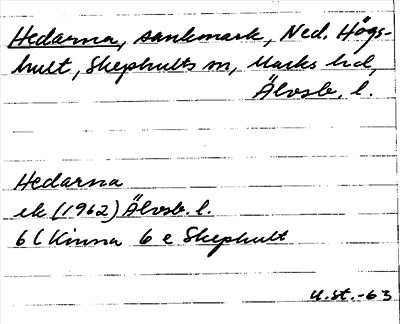 Hedarna, sankmark, Ned. Högs-
hult, Skephults sn, Marks hd,
Älvsb. l.
Hedarna
ek (1962) Älvsb. l.
6 C Kinna 6 e Skephult
U.St.-63